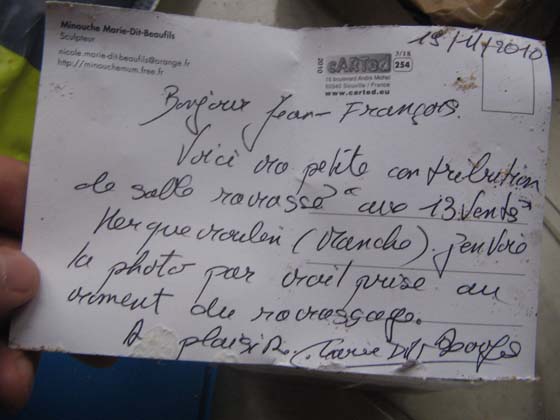 Minouche Marie-Dit-Beaufils
Sculpteur
nicole.marie-dit-beaufils@orange.fr
http://minouchemum.free.fr
2010
cARTed
7/18
254
15 boulevard André Mahel
50340 Siouville / France
www.carted.eu
15/11/2010
Bonjour Jean-François.
Voici ma petite contribution
de sable ramassé "aux 13 Vents"
Herquemoulin (Manche). J'envoie
la photo par mail prise au
moment du ramassage.
A plaisir. Marie Dit Beaufils